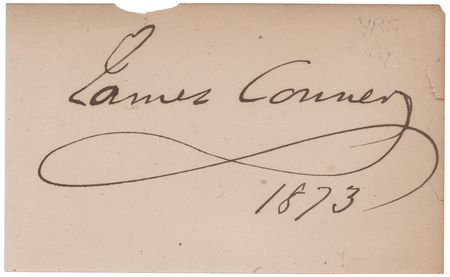 YBS
James Conner
1873